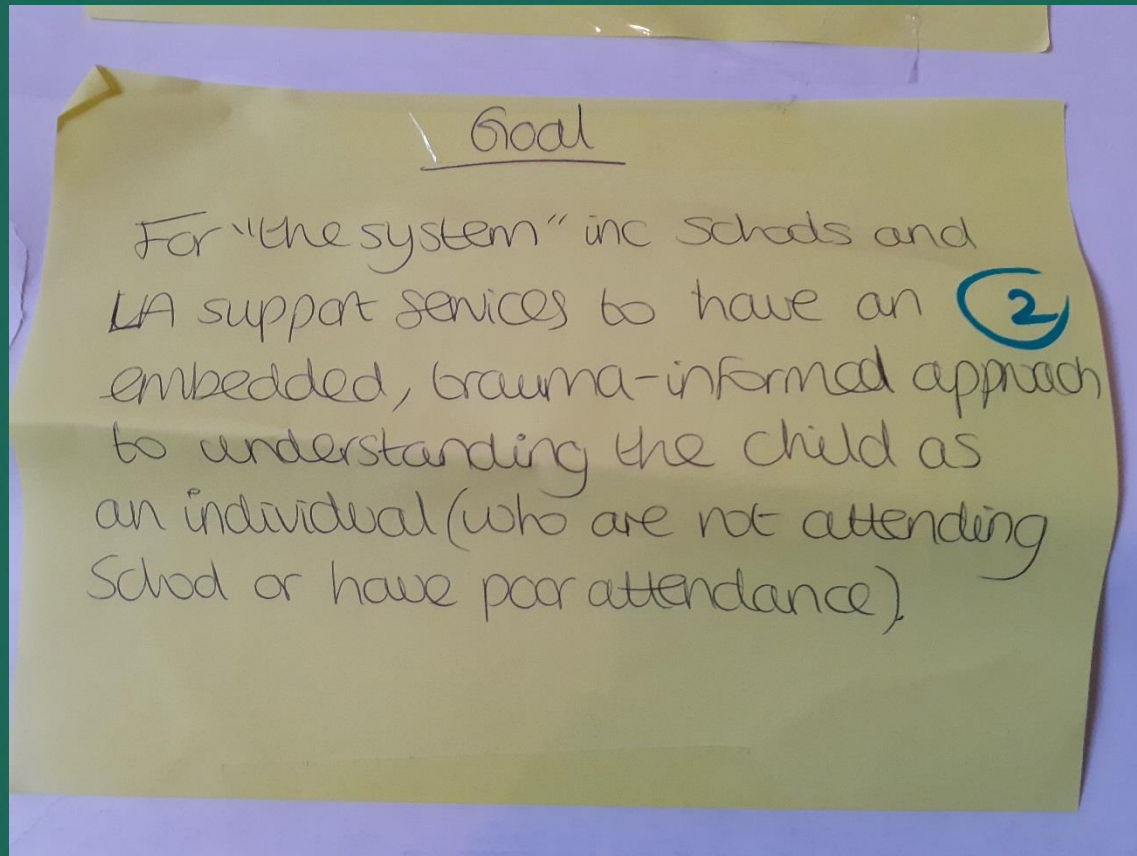 Goal
For "the system" inc schools and
LA support services to have an 2
embedded, trauma-informed approach
to understanding the child as
an individual (who are not attending
School or have poor attendance).